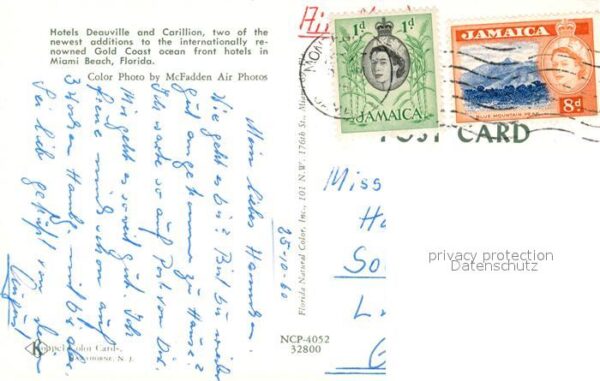 Hotels Deauville and Carillion, two of the
newest additions to the internationally re-
nowned Gold Coast ocean front hotels in
Miami Beach, Florida.
Color Photo by McFadden Air Photos
Air
1d 1d
JAMAICA
JAMAICA
BLUE MOUNTAIN PEAK
8d
POST CARD
25-10-60
Mein liebes
Wie geht es Dir? Bist Du wieder
gut angekommen zu Hause?
Ich warte so auf Post von Dir.
Mir geht es soweit gut. Ich
freue mich schon auf
mit Dir
Sei lieb gegrüßt von Deinem
August
Florida Natural Color, Inc., 101 N.W. 176th St.,
Miss
Ha
So
L
privacy protection
Datenschutz
NCP-4052
32800
Koppel Color Cards
HAWTHORNE, N. J.